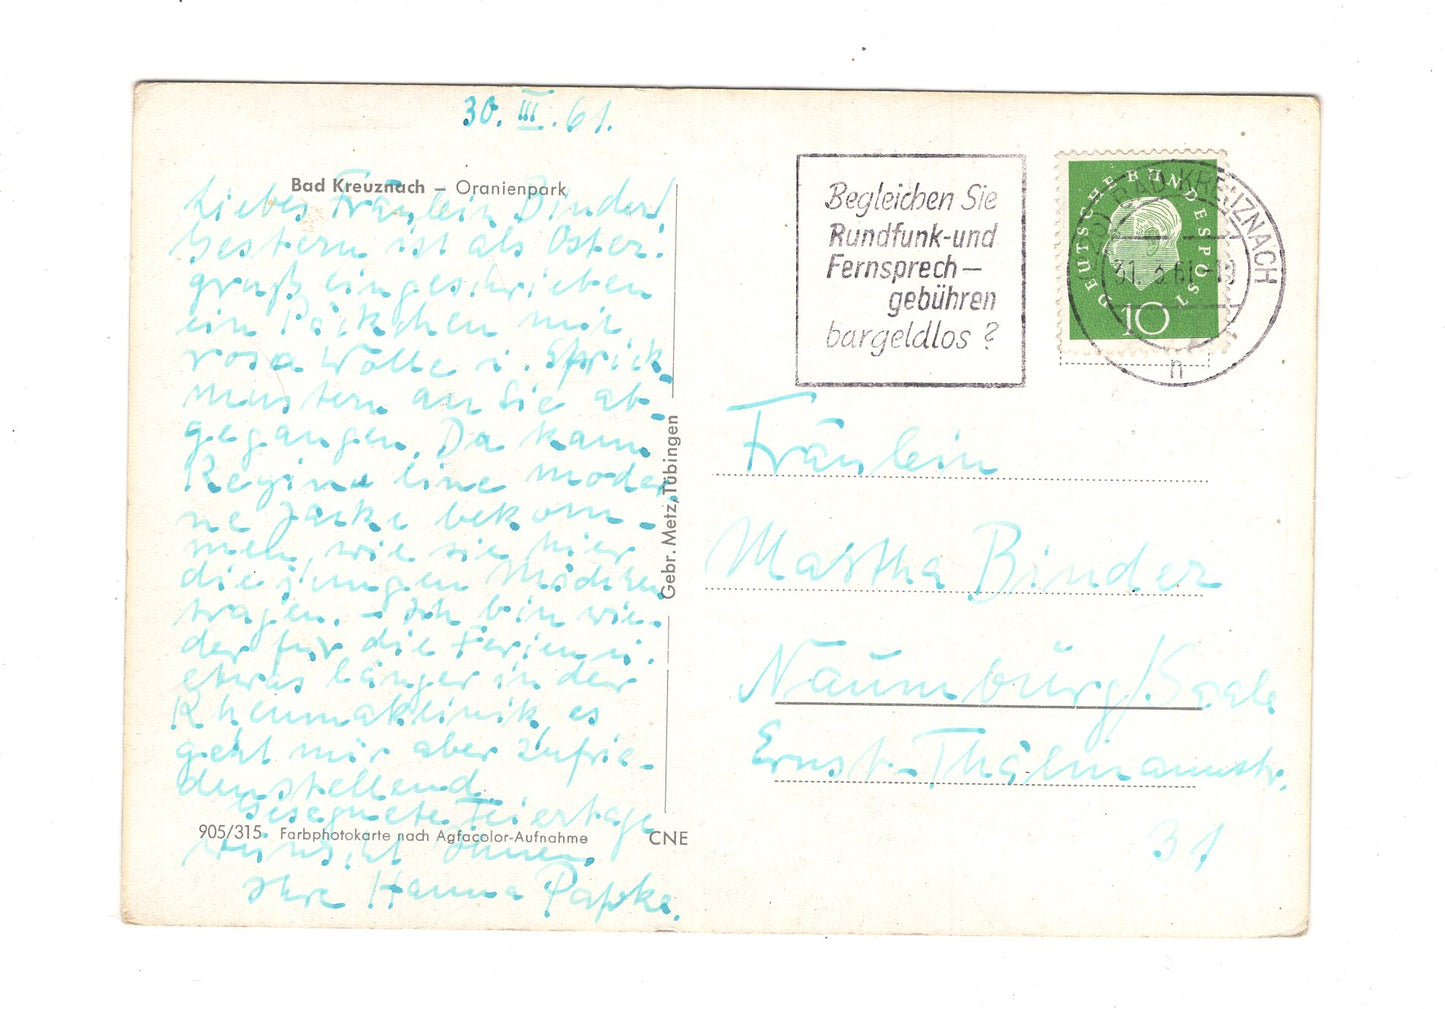 30. III. 61.
Bad Kreuznach – Oranienpark
Liebes Fräulein Binder!
Gestern ist als Oster-
gruß eingeschrieben
ein Päckchen mit
rosa Wolle u. Strick-
mustern an Sie ab-
gegangen. Da kann
Regina eine moder-
ne Jacke bekom-
men, wie sie hier
die jungen Mädchen
tragen. – Ich bin wie-
der für die Ferien u.
etwas länger in der
Rheumaklinik, es
geht mir aber zufrie-
denstellend.
Gesegnete Feiertage
wünscht Ihnen
Ihre Hanna Papke.
905/315 Farbphotokarte nach Agfacolor-Aufnahme
CNE
Gebr. Metz, Tübingen
Begleichen Sie
Rundfunk-und
Fernsprech–
gebühren
bargeldlos?
DEUTSCHE BUNDESPOST
10
BAD KREUZNACH
31. 3. 61
n
Fräulein
Martha Binder
Naumburg/Saale
Ernst-Thälmannstr.
31